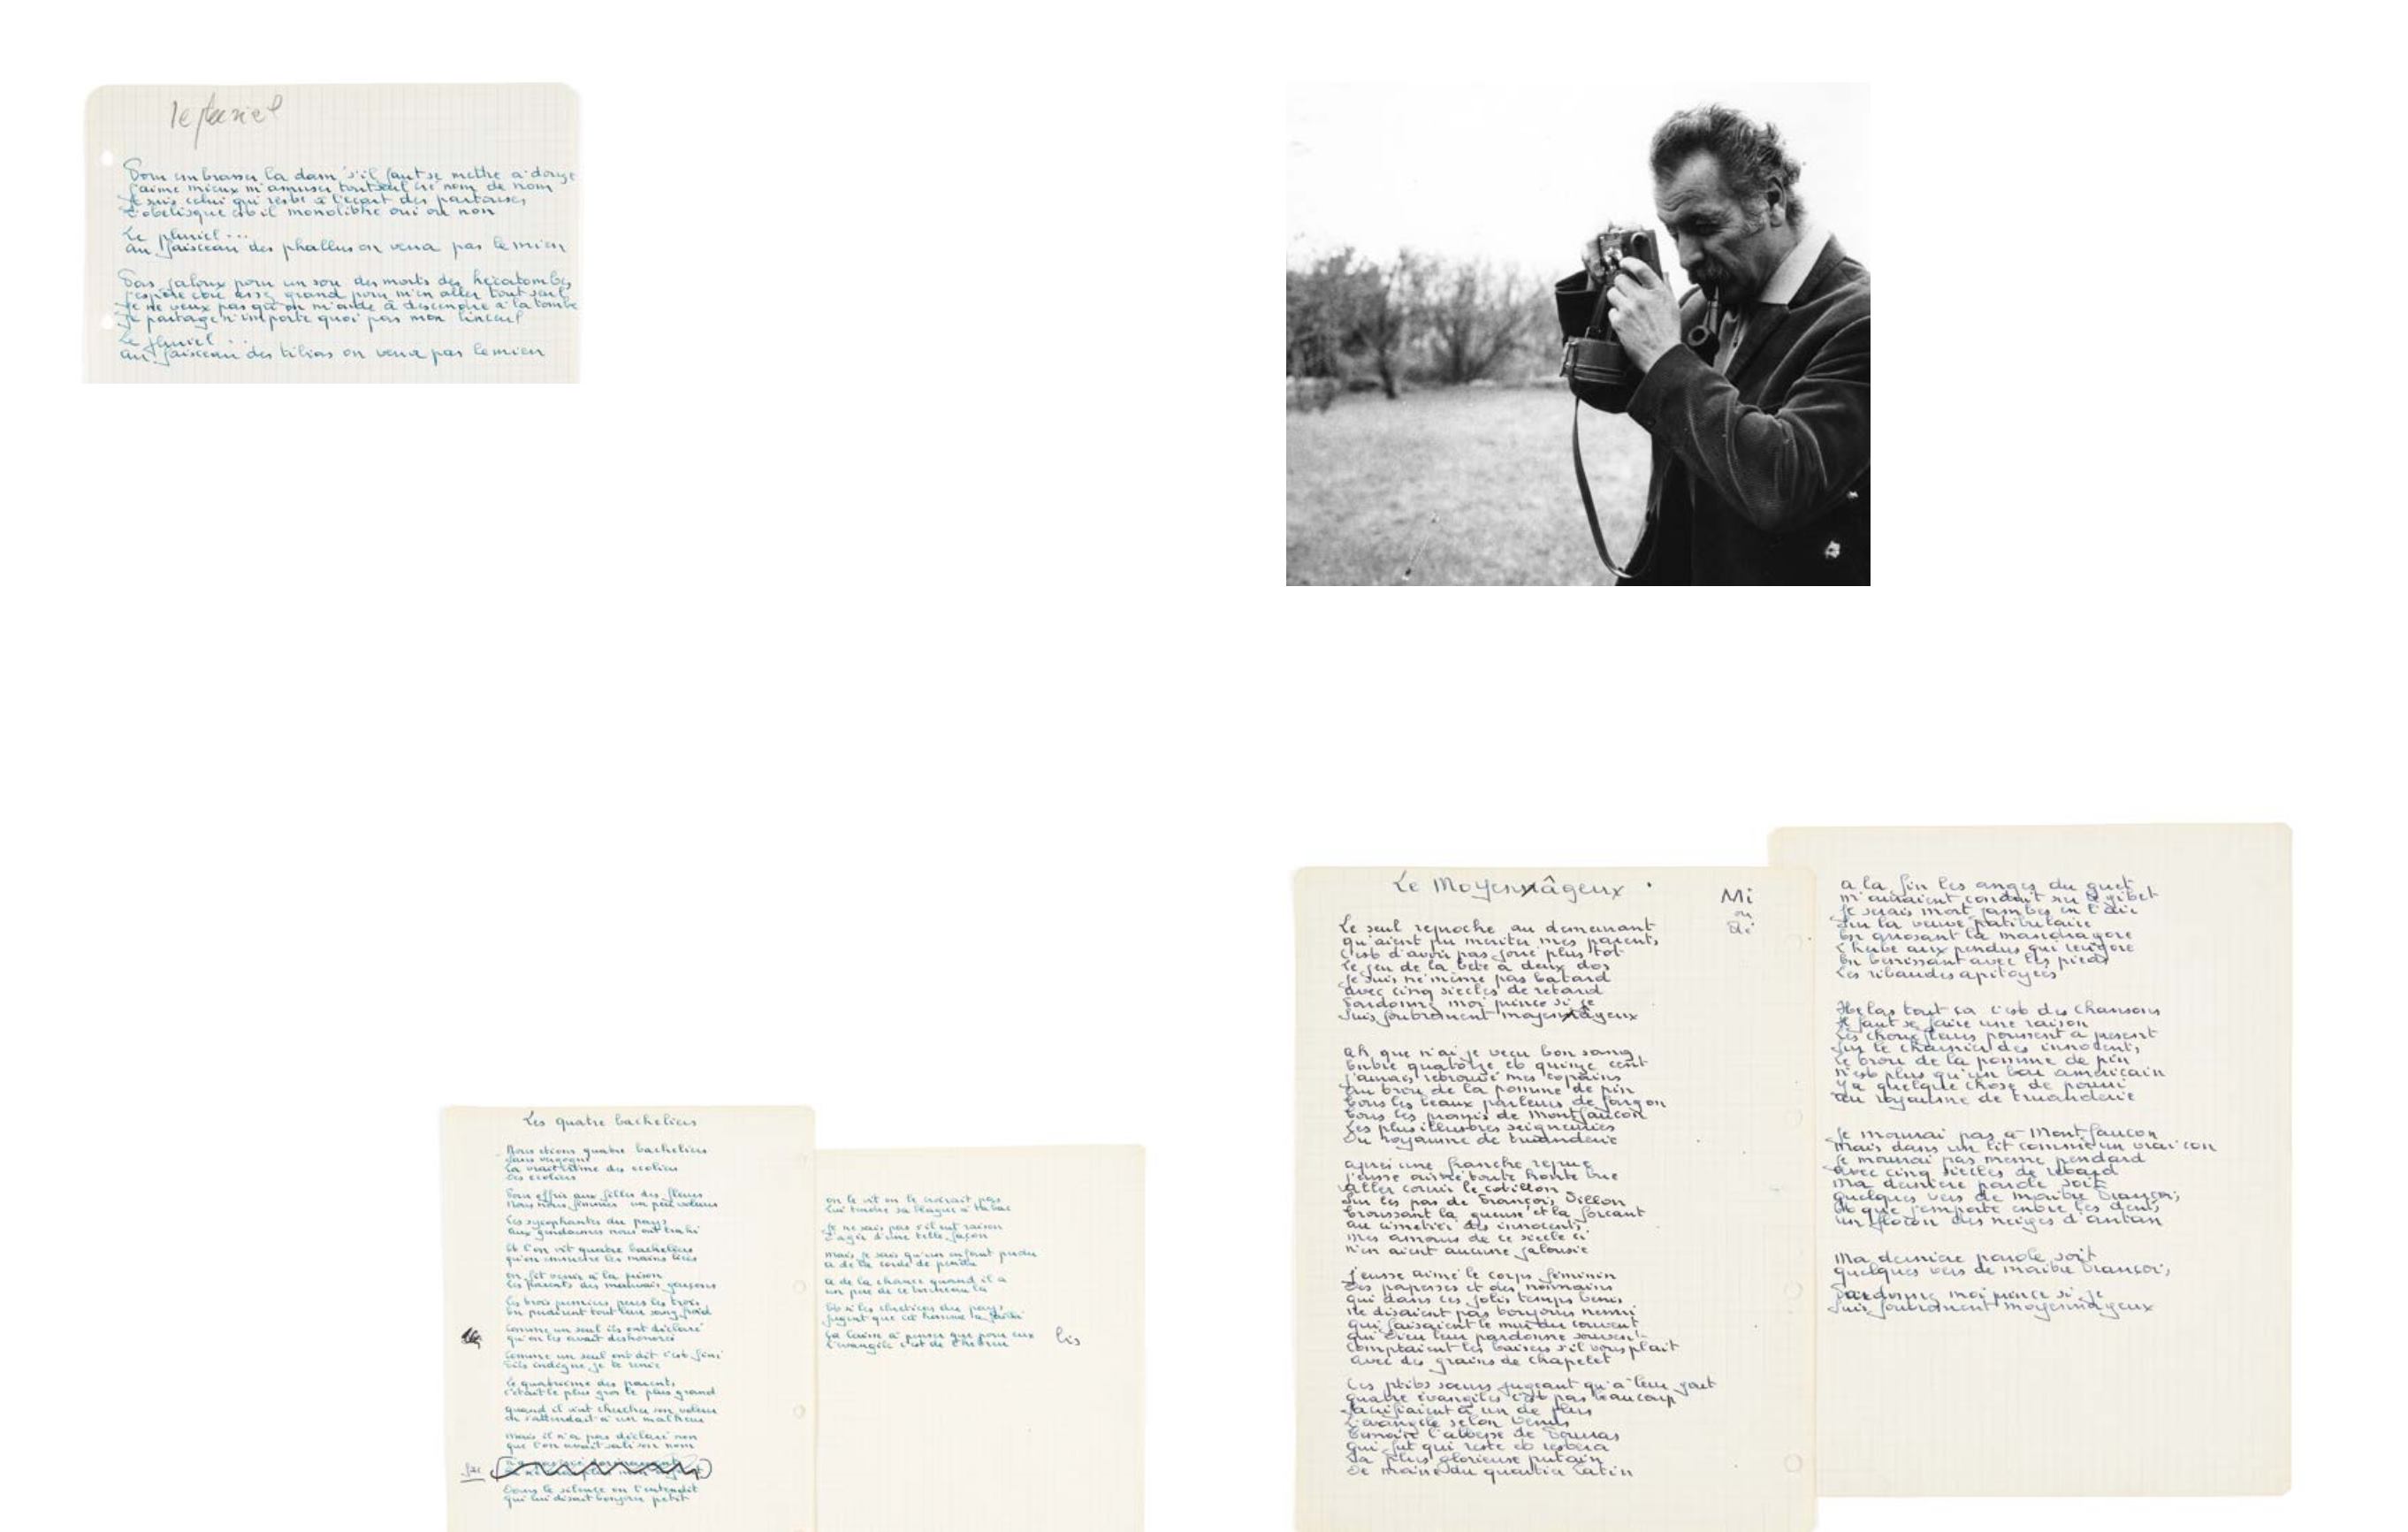 le pluriel
Pour embrasser la dam' s'il faut se mettre à douze
J'aime mieux m'amuser tout seul cré nom de nom
Je suis celui qui reste à l'écart des partouzes
L'obélisque est il monolithe oui ou non
Le pluriel...
au faisceau des phallus on verra pas le mien
Pas jaloux pour un sou des morts des hécatombes
J'espère être assez grand pour m'en aller tout seul
Je ne veux pas qu'on m'aide à descendre à la tombe
Je partage n'importe quoi pas mon linceul
Le pluriel...
au faisceau des tibias on verra pas le mien
Les quatre bacheliers
Nous étions quatre bacheliers
Sans vergogne
La vraie crème des écoliers
Des écoliers
Pour offrir aux filles des fleurs
Nous nous fîmes un peu voleurs
Les sycophantes du pays
aux gendarmes nous ont trahi
Et l'on vit quatre bacheliers
qu'on emmène les mains liées
on fit venir à la prison
Les parents des mauvais garçons
Les trois premiers pères les trois
En perdirent tout leur sang froid
Comme un seul ils ont déclaré
qu'on les avait déshonorés
Comme un seul ont dit c'est fini
Fils indigne je te renie
Le quatrième des parents
c'était le plus gros le plus grand
quand il vint chercher son voleur
On s'attendait à un malheur
Mais il n'a pas déclaré non
que l'on avait sali son nom
Dans le silence on l'entendit
qui lui disait bonjour petit
on le vit on le croirait pas
Lui tendre sa blague à tabac
Je ne sais pas s'il eut raison
D'agir d'une telle façon
Mais je sais qu'un enfant perdu
a de la corde de pendu
a de la chance quand il a
un père de ce tonneau là
Et si les chrétiens du pays
Jugent que cet homme a failli
Ça laisse à penser que pour eux
L'évangile c'est de l'hébreu
bis
Le Moyenâgeux
Mi
ou
Ré
Le seul reproche au demeurant
qu'aient pu mériter mes parents
C'est d'avoir pas joué plus tôt
Le jeu de la bête à deux dos
Je suis né même pas bâtard
avec cinq siècles de retard
Pardonnez moi prince si je
Suis foutrement moyenâgeux
ah que n'ai je vécu bon sang
Entre quatorze et quinze cent
J'aurais retrouvé mes copains
Au trou de la pomme de pin
Tous les beaux parleurs de jargon
Tous les promis de Montfaucon
Les plus illustres seigneuries
Du royaume de truanderie
après une franche repue
J'eusse aimé toute honte bue
aller courir le cotillon
Sur les pas de François Villon
Troussant la gueuse et la forçant
au cimetière des innocents
Mes amours de ce siècle ci
N'en aient aucune jalousie
J'eusse aimé le corps féminin
Des papesses et des nonnains
qui dans ces jolis temps bénis
Ne disaient pas toujours nenni
qui faisaient le mur du couvent
qui Dieu leur pardonne souvent
Comptaient les baisers s'il vous plait
avec des grains de chapelet
Ces ptits soeurs jugeant qu'à leur gout
quatre évangiles c'est pas beaucoup
Sacrifiaient à un de plus
L'évangile selon Vénus
Témoin l'abbesse de Pourras
qui fut qui reste et restera
La plus glorieuse putain
De moine du quartier latin
a la fin les anges du guet
M'auraient conduit au gibet
Je serais mort jambes en l'air
Sur la veuve patibulaire
En arrosant la mandragore
L'herbe aux pendus qui revigore
En bénissant avec les pieds
Les ribaudes apitoyées
Hélas tout ça c'est des chansons
Il faut se faire une raison
Les choux fleurs poussent à présent
Sur le charnier des innocents
Le trou de la pomme de pin
N'est plus qu'un bar américain
Y a quelque chose de pourri
Au royaume de truanderie
Je mourrai pas à Montfaucon
Mais dans un lit comme un vrai con
Je mourrai pas même pendard
avec cinq siècles de retard
Ma dernière parole soit
quelques vers de maître François
Et que j'emporte entre les dents
un flocon des neiges d'antan
Ma dernière parole soit
quelques vers de maître François
Pardonnez moi prince si je
Suis foutrement moyenâgeux